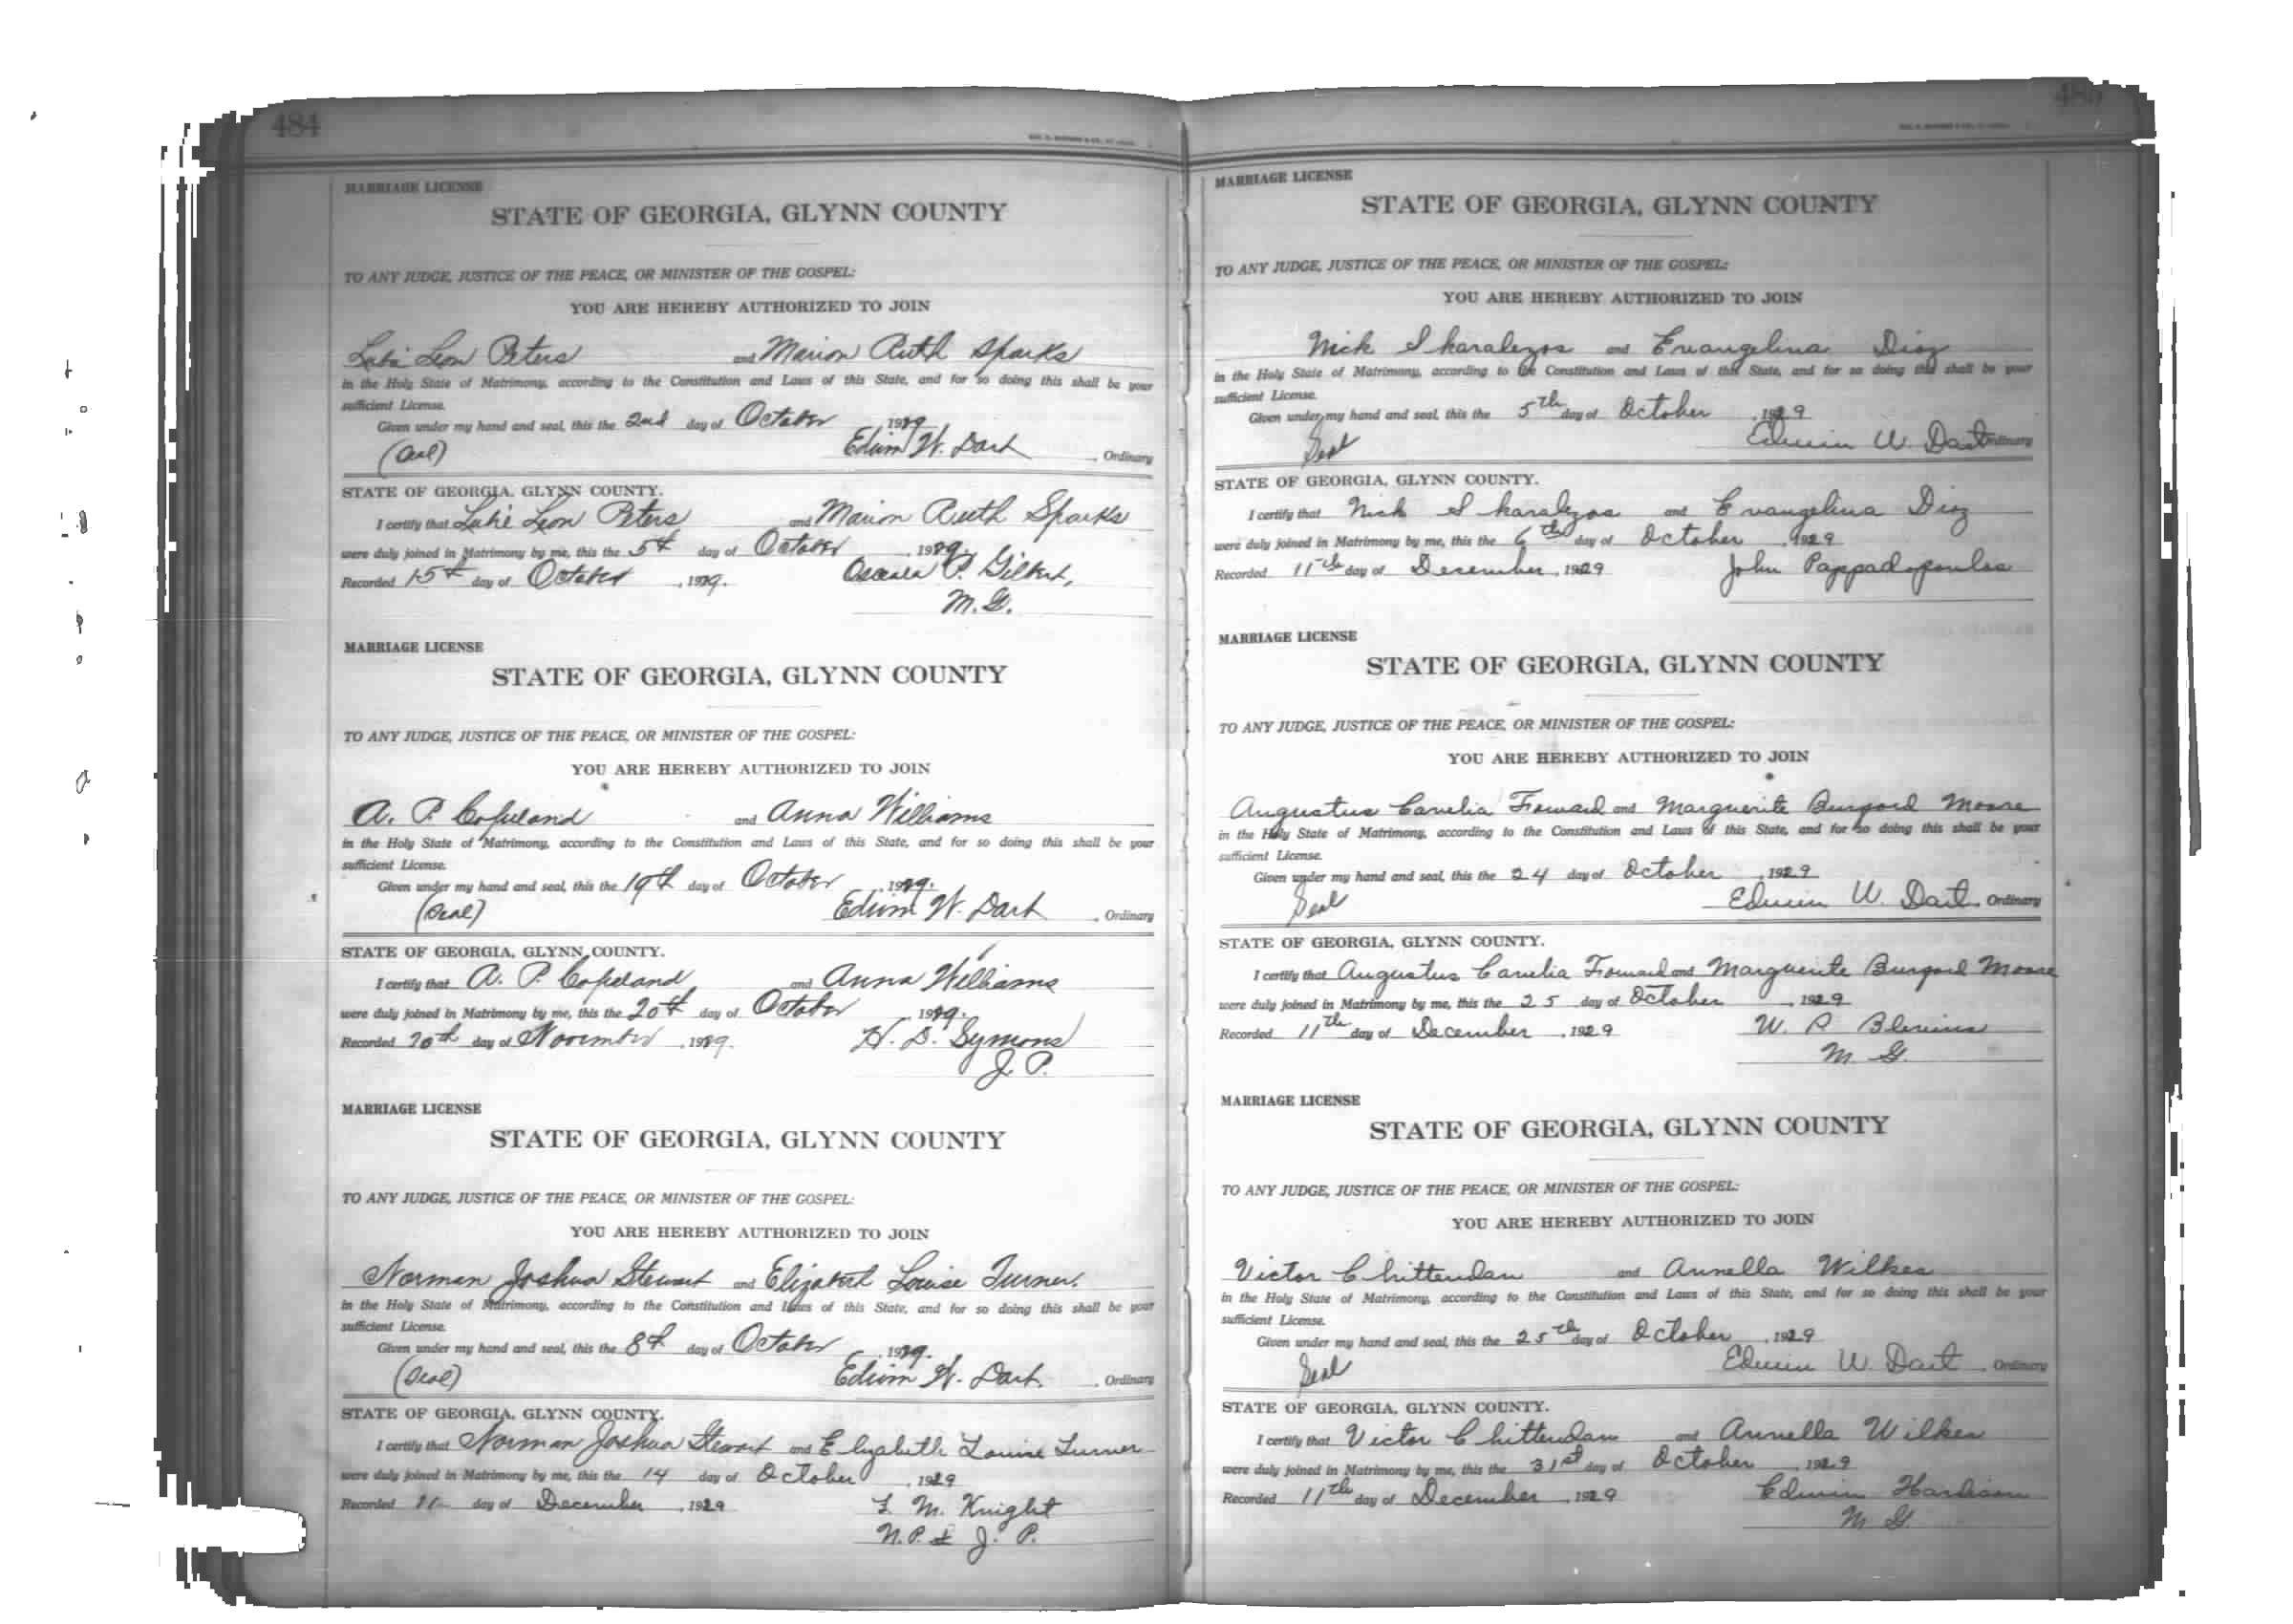 484
MARRIAGE LICENSE
STATE OF GEORGIA, GLYNN COUNTY
TO ANY JUDGE, JUSTICE OF THE PEACE, OR MINISTER OF THE GOSPEL:
YOU ARE HEREBY AUTHORIZED TO JOIN
Leon Peters and Marion Ruth Sparks
in the Holy State of Matrimony, according to the Constitution and Laws of this State, and for so doing this shall be your
sufficient License.
Given under my hand and seal, this the 2nd day of October, 1929
(Seal) Edwin W. Dart, Ordinary
STATE OF GEORGIA, GLYNN COUNTY.
I certify that Leon Peters and Marion Ruth Sparks
were duly joined in Matrimony by me, this the 5th day of October, 1929.
Recorded 15th day of October, 1929. P. Gilbert,
M.G.
MARRIAGE LICENSE
STATE OF GEORGIA, GLYNN COUNTY
TO ANY JUDGE, JUSTICE OF THE PEACE, OR MINISTER OF THE GOSPEL:
YOU ARE HEREBY AUTHORIZED TO JOIN
A. P. Copeland and Anna Williams
in the Holy State of Matrimony, according to the Constitution and Laws of this State, and for so doing this shall be your
sufficient License.
Given under my hand and seal, this the 19th day of October, 1929.
(Seal) Edwin W. Dart, Ordinary
STATE OF GEORGIA, GLYNN COUNTY.
I certify that A. P. Copeland and Anna Williams
were duly joined in Matrimony by me, this the 20th day of October, 1929.
Recorded 20th day of November, 1929. H. D. Symons
J. P.
MARRIAGE LICENSE
STATE OF GEORGIA, GLYNN COUNTY
TO ANY JUDGE, JUSTICE OF THE PEACE, OR MINISTER OF THE GOSPEL:
YOU ARE HEREBY AUTHORIZED TO JOIN
Norman Joshua Stewart and Elizabeth Louise Turner.
in the Holy State of Matrimony, according to the Constitution and Laws of this State, and for so doing this shall be your
sufficient License.
Given under my hand and seal, this the 8th day of October, 1929.
(Seal) Edwin W. Dart, Ordinary
STATE OF GEORGIA, GLYNN COUNTY.
I certify that Norman Joshua Stewart and Elizabeth Louise Turner
were duly joined in Matrimony by me, this the 14 day of October, 1929
Recorded 11 day of December, 1929 M. Knight
N.P. & J. P.
485
MARRIAGE LICENSE
STATE OF GEORGIA, GLYNN COUNTY
TO ANY JUDGE, JUSTICE OF THE PEACE, OR MINISTER OF THE GOSPEL:
YOU ARE HEREBY AUTHORIZED TO JOIN
Nick Skaralezos and Evangelina Dioz
in the Holy State of Matrimony, according to the Constitution and Laws of this State, and for so doing this shall be your
sufficient License.
Given under my hand and seal, this the 5th day of October, 1929
Seal Edwin W. Dart Ordinary
STATE OF GEORGIA, GLYNN COUNTY.
I certify that Nick Skaralezos and Evangelina Dioz
were duly joined in Matrimony by me, this the 6th day of October, 1929
Recorded 11th day of December, 1929 John Pappadopoulos
MARRIAGE LICENSE
STATE OF GEORGIA, GLYNN COUNTY
TO ANY JUDGE, JUSTICE OF THE PEACE, OR MINISTER OF THE GOSPEL:
YOU ARE HEREBY AUTHORIZED TO JOIN
Augustus and Marguerite Moore
in the Holy State of Matrimony, according to the Constitution and Laws of this State, and for so doing this shall be your
sufficient License.
Given under my hand and seal, this the 24 day of October, 1929
Seal Edwin W. Dart Ordinary
STATE OF GEORGIA, GLYNN COUNTY.
I certify that Augustus and Marguerite Moore
were duly joined in Matrimony by me, this the 25 day of October, 1929
Recorded 11th day of December, 1929 W. R. Blevins
M. G.
MARRIAGE LICENSE
STATE OF GEORGIA, GLYNN COUNTY
TO ANY JUDGE, JUSTICE OF THE PEACE, OR MINISTER OF THE GOSPEL:
YOU ARE HEREBY AUTHORIZED TO JOIN
Victor Chittendan and Annella Wilkes
in the Holy State of Matrimony, according to the Constitution and Laws of this State, and for so doing this shall be your
sufficient License.
Given under my hand and seal, this the 25th day of October, 1929
Seal Edwin W. Dart, Ordinary
STATE OF GEORGIA, GLYNN COUNTY.
I certify that Victor Chittendan and Annella Wilkes
were duly joined in Matrimony by me, this the 31st day of October, 1929
Recorded 11th day of December, 1929 Edwin Hardison
M G.